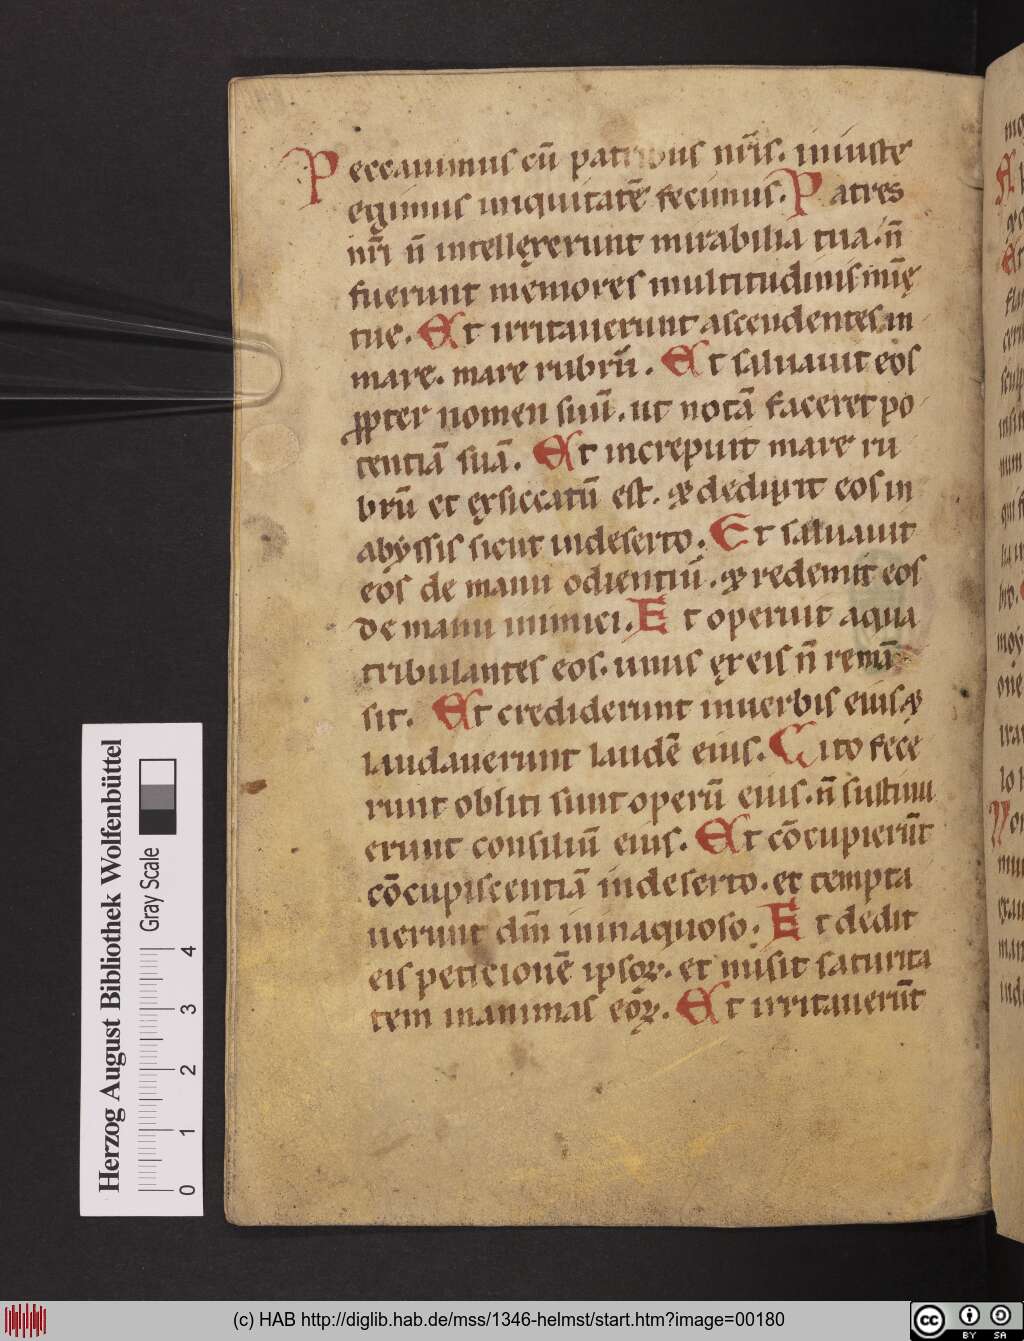 Peccauimus cū patribus nr̄is. iniuste
egimus iniquitatē fecimus. Patres
nr̄i n̄ intellęxerunt mirabilia tua. n̄
fuerunt memores multitudinis mīę
tue. Et irritauerunt ascendentes in
mare. mare rubrū. Et saluauit eos
ꝓpter nomen suū. ut notā faceret po
tentiā suā. Et increpuit mare ru
brū et ęxsiccatū est. & deduxit eos in
abyssis sicut indeserto. Et saluauit
eos de manu odientiū. & redemit eos
de manu inimici. Et operuit aqua
tribulantes eos. unus ęx eis n̄ remā
sit. Et crediderunt inuerbis eius &
laudauerunt laudē eius. Cito fece
runt obliti sunt operū eius. n̄ sustinu
erunt consiliū eius. Et cōcupierūt
cōcupiscentiā indeserto. et tempta
uerunt dm̄ ininaquoso. Et dedit
eis peticionē ipsoꝝ. et misit saturita
tem inanimas eoꝝ. Et irritauerūt
Herzog August Bibliothek Wolfenbüttel
Gray Scale
0 1 2 3 4
(c) HAB http://diglib.hab.de/mss/1346-helmst/start.htm?image=00180
cc BY SA